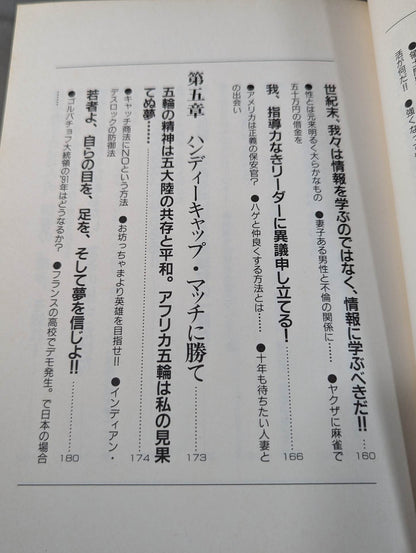 世紀末、我々は情報を学ぶのではなく、情報に学ぶべきだ!!……160
●性とは元来明るく大らかなもの ●妻子ある男性と不倫の関係に…… ●ヤクザに麻雀で
五十万円の借金を
我、指導力なきリーダーに異議申し立てる!…………166
●アメリカは正義の保安官? ●ハゲと仲良くする方法とは…… ●十年も待ちたい人妻と
の出会い
第五章 ハンディーキャップ・マッチに勝て…………173
五輪の精神は五大陸の共存と平和。アフリカ五輪は私の見果
てぬ夢……………………174
●キャッチ商法にNOという方法 ●お坊っちゃまより英雄を目指せ!! ●インディアン・
デスロックの防御法
若者よ、自らの目を、足を、そして夢を信じよ!!…………180
●ゴルバチョフ大統領の'91年はどうなるか? ●フランスの高校でデモ発生。で日本の場合